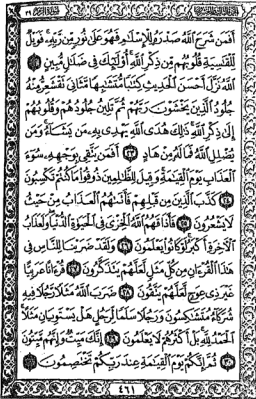 أَفَمَن شَرَحَ اللَّهُ صَدْرَهُ لِلْإِسْلَامِ فَهُوَ عَلَى نُورٍ مِّن رَّبِّهِ فَوَيْلٌ
لِّلْقَاسِيَةِ قُلُوبُهُم مِّن ذِكْرِ اللَّهِ أُولَٰئِكَ فِي ضَلَالٍ مُّبِينٍ ٢٢
اللَّهُ نَزَّلَ أَحْسَنَ الْحَدِيثِ كِتَابًا مُّتَشَابِهًا مَّثَانِيَ تَقْشَعِرُّ مِنْهُ
جُلُودُ الَّذِينَ يَخْشَوْنَ رَبَّهُمْ ثُمَّ تَلِينُ جُلُودُهُمْ وَقُلُوبُهُمْ
إِلَىٰ ذِكْرِ اللَّهِ ذَٰلِكَ هُدَى اللَّهِ يَهْدِي بِهِ مَن يَشَاءُ وَمَن
يُضْلِلِ اللَّهُ فَمَا لَهُ مِنْ هَادٍ ٢٣ أَفَمَن يَتَّقِي بِوَجْهِهِ سُوءَ
الْعَذَابِ يَوْمَ الْقِيَامَةِ وَقِيلَ لِلظَّالِمِينَ ذُوقُوا مَا كُنتُمْ تَكْسِبُونَ
٢٤ كَذَّبَ الَّذِينَ مِن قَبْلِهِمْ فَأَتَاهُمُ الْعَذَابُ مِنْ حَيْثُ
لَا يَشْعُرُونَ ٢٥ فَأَذَاقَهُمُ اللَّهُ الْخِزْيَ فِي الْحَيَاةِ الدُّنْيَا وَلَعَذَابُ
الْآخِرَةِ أَكْبَرُ لَوْ كَانُوا يَعْلَمُونَ ٢٦ وَلَقَدْ ضَرَبْنَا لِلنَّاسِ فِي
هَٰذَا الْقُرْآنِ مِن كُلِّ مَثَلٍ لَّعَلَّهُمْ يَتَذَكَّرُونَ ٢٧ قُرْآنًا عَرَبِيًّا
غَيْرَ ذِي عِوَجٍ لَّعَلَّهُمْ يَتَّقُونَ ٢٨ ضَرَبَ اللَّهُ مَثَلًا رَّجُلًا فِيهِ
شُرَكَاءُ مُتَشَاكِسُونَ وَرَجُلًا سَلَمًا لِّرَجُلٍ هَلْ يَسْتَوِيَانِ مَثَلًا
الْحَمْدُ لِلَّهِ بَلْ أَكْثَرُهُمْ لَا يَعْلَمُونَ ٢٩ إِنَّكَ مَيِّتٌ وَإِنَّهُم مَّيِّتُونَ
٣٠ ثُمَّ إِنَّكُمْ يَوْمَ الْقِيَامَةِ عِندَ رَبِّكُمْ تَخْتَصِمُونَ ٣١
٤٦١